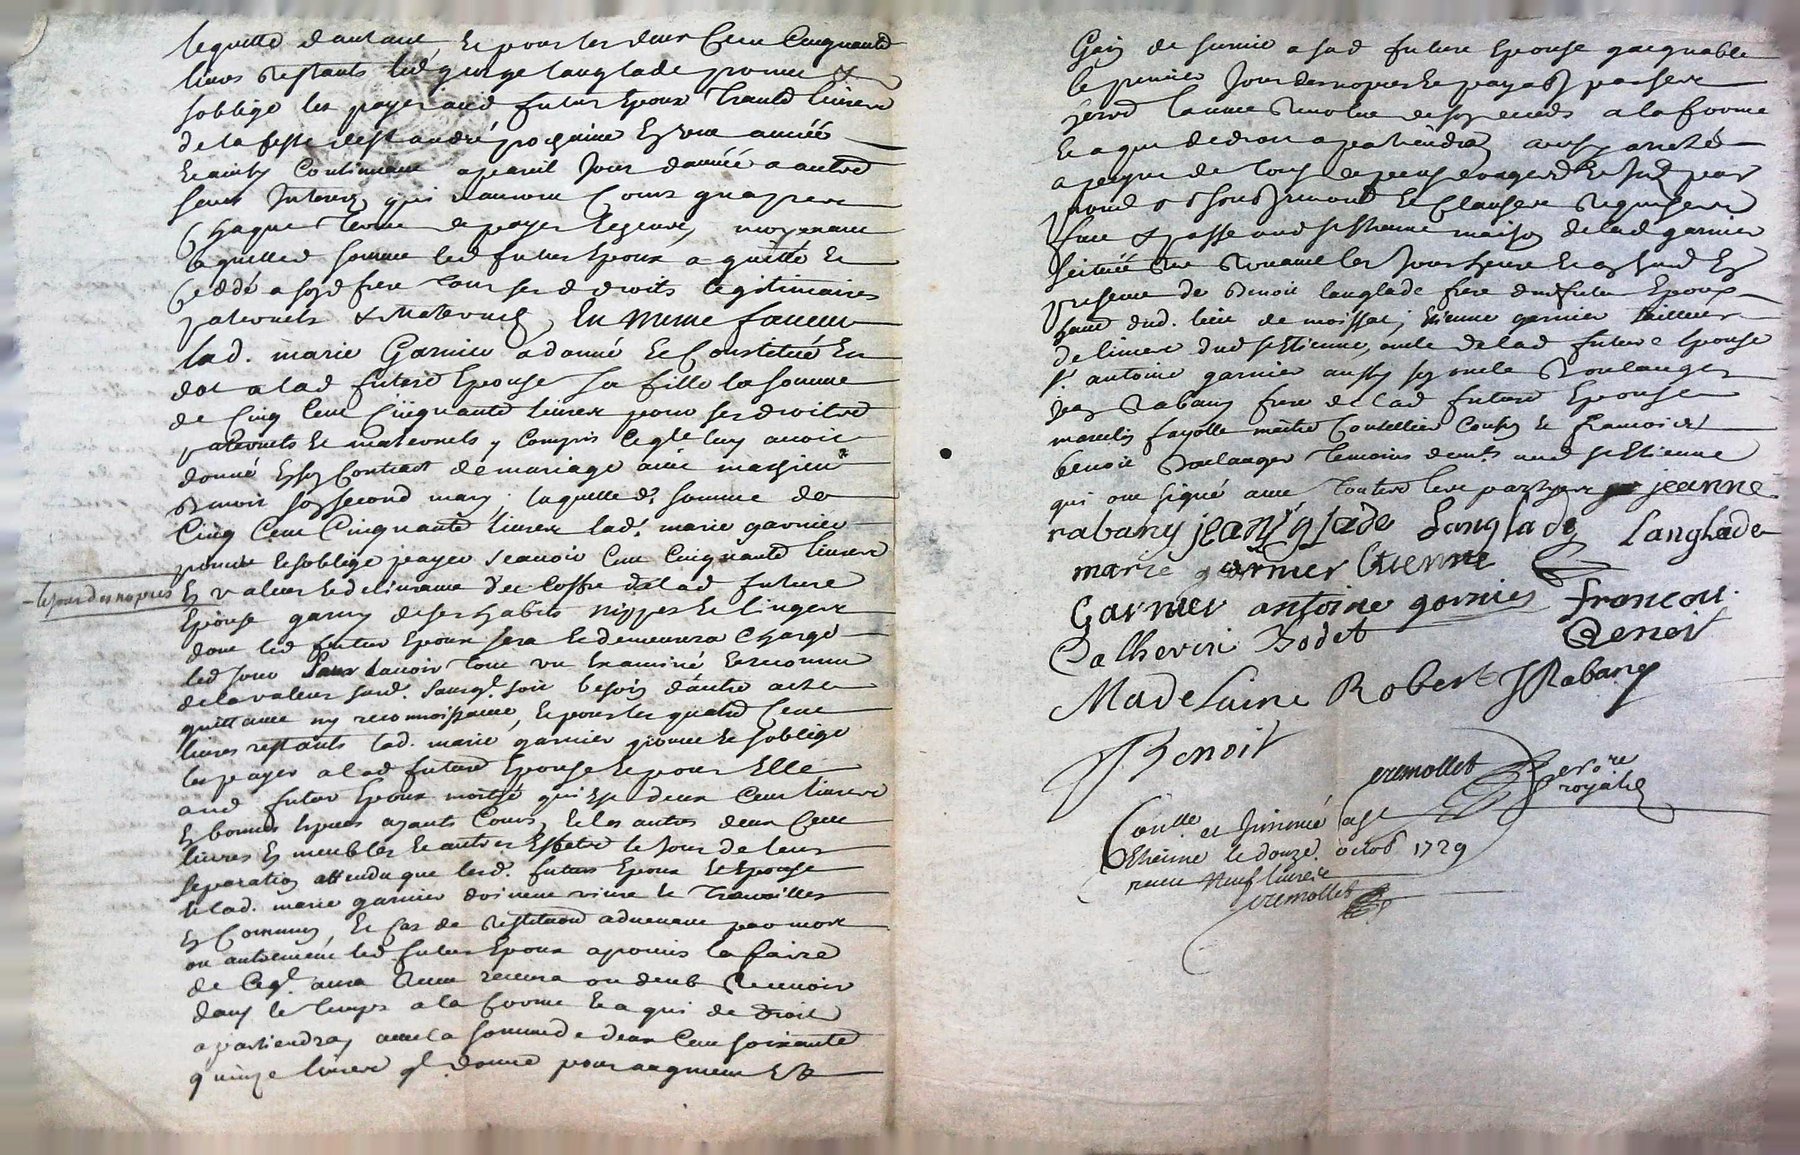 le quitte dautant, Et pour les deux Cent Cinquante
livres Restants led. george langlade promet &
soblige les payer aud futur Epoux Trante livres
de la feste de st andré prochaine En une année
Et ainsy Continuant a pareil Jour dannée a autre
sans Interest, qui nauront Cours quapres
Chaque Terme de payer, moyenant
laquelle somme led futur Epoux a quitté Et
Cedé a son frere Tous ses droits legitimaires
paternels & maternels, En meme faveur
lad. marie Garnier a donné Et Constitué En
dot a lad future Epouse sa fille la somme
de Cinq Cent Cinquante livres pour ses droits
paternels Et maternels y Compris Ce quelle luy avoit
donné En son Contract de mariage avec
Benoit son second mary, laquelle de somme de
Cinq Cent Cinquante livres lad. marie garnier
promet Et soblige payer scavoir Cent Cinquante livres
- le jour des nopces
En valeur Et delivrance du Coffre de lad future
Epouse garny de ses habits nippes Et linges
dont led futur Epoux sera Et demeurera Chargé
led Jour pour lavoir Tout vu Examiné Et reconnu
de la valeur susd. sans quil soit besoin dautre acte
quittance ny reconnoissance, Et pour les quatre Cent
livres restants lad. marie garnier promet Et soblige
les payer a lad future Epouse Et pour Elle
aud futur Epoux moitié qui Est deux Cent livres
En bonnes Especes ayants Cours, Et les autres deux Cent
livres En meubles Et autres Effets le Jour de leur
separation attendu que lesd. futurs Epoux Et Epouse
Et lad. marie garnier doivent vivre Et Travailler
En Commun, Et Cas de Restitution advenant par mort
ou autrement led futur Epoux a promis la faire
de Ce quil aura receu ou deub Recevoir
dans le Temps a la forme Et a qui de droit
apartiendra, avec la somme de deux Cent soixante
quinze livres quil donne pour augment Et
Gain de survie a sad future Epouse gaignable
le premier Jour des nopces Et payable
lannee Revolue de son deceds a la forme
Et a qui de droit apartiendra, ainsy arresté
a peyne de Tous depens domages Et Int par
promis & Clauses Requises
fait & passé aud st Etienne maison de lad garnier
scituée Rue les Jour heure Et an susd En
presence de Benoit langlade frere dud futur Epoux
hant dud. lieu de moissac, Etienne garnier Tailleur
de limes dud st Etienne, oncle de lad future Epouse
sr antoine garnier aussy son oncle Boulanger
jean Rabany frere de lad future Epouse
marcelin fayolle maitre Coutellier Cousin Et francois
benoit Boulanger Temoins demts aud st Etienne
qui ont signé avec Toutes les partyes jeanne
rabany jean langlade Langlade Langlade
marie garnier Etienne
Garnier antoine garnier francois
Catherin Bodet Benoit
Madelaine Robert J Rabany
J Benoit
cremollet nore
royal
Conllé et Insinué a st
Etienne le douze octob 1729
receu Neuf livres
cremollet